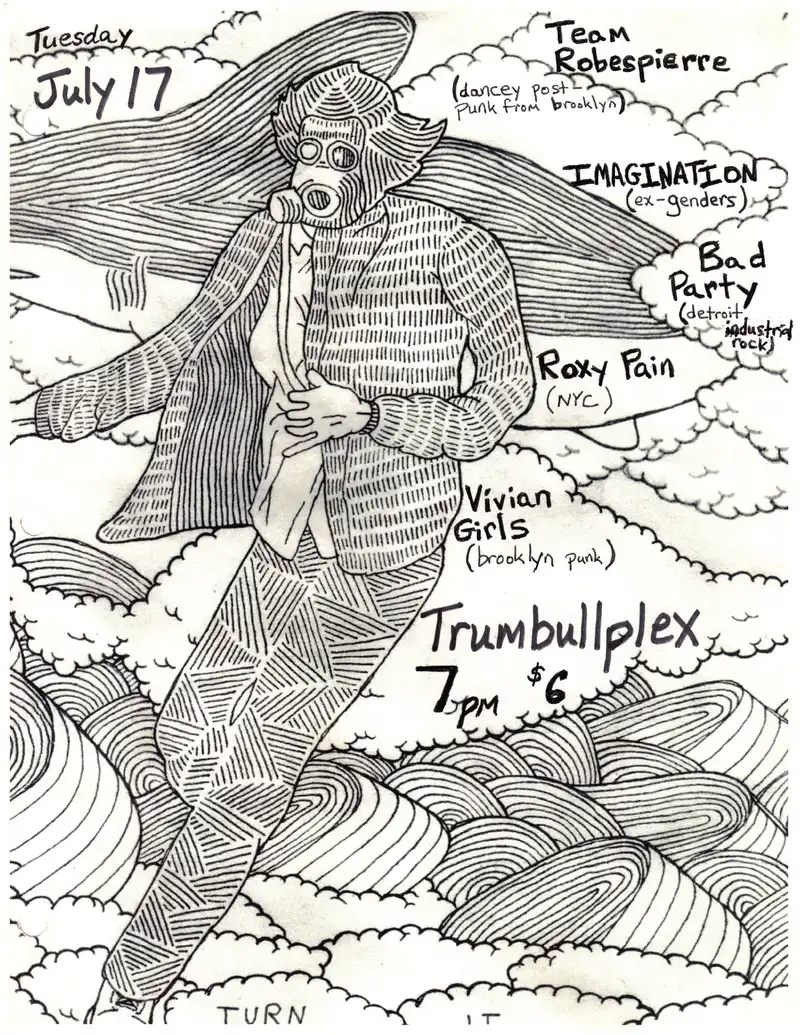 Tuesday
July 17
Team
Robespierre
(dancey post-
punk from brooklyn)
IMAGINATION
(ex-genders)
Bad
Party
(detroit
industrial
rock)
Roxy Pain
(NYC)
Vivian
Girls
(brooklyn punk)
Trumbullplex
7pm $6
TURN IT